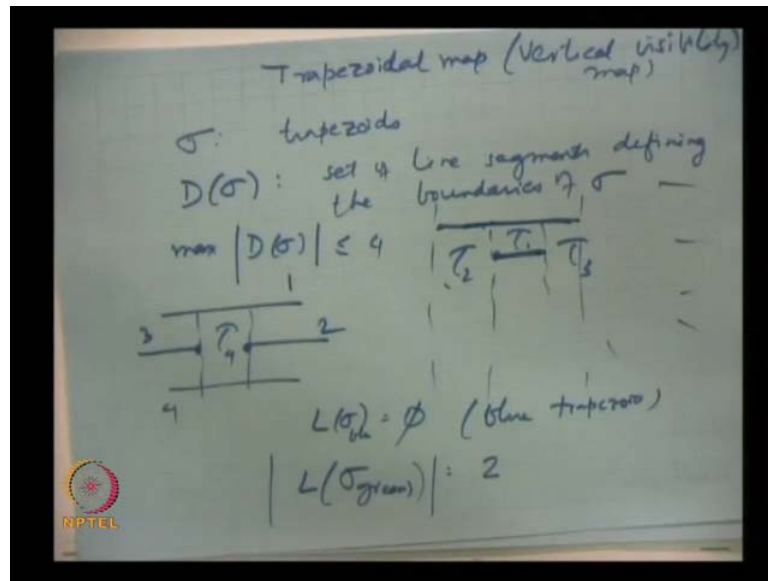 Trapezoidal map (vertical visibility map)
σ: trapezoids
D(σ): set of line segments defining
the boundaries of σ
max |D(σ)| ≤ 4
T₂ T₁ T₃
1
3 T₄ 2
4
L(σ) = ∅ (blue trapezoid)
|L(σgreen)| : 2
NPTEL